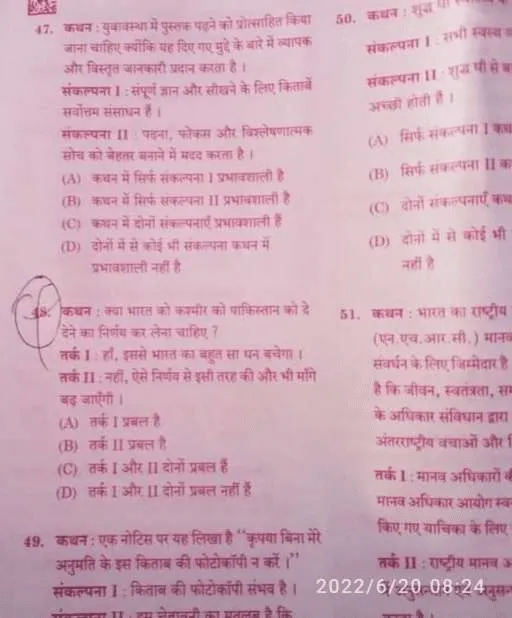 47. कथन : युवावस्था में पुस्तक पढ़ने को प्रोत्साहित किया
जाना चाहिए क्योंकि यह दिए गए मुद्दे के बारे में व्यापक
और विस्तृत जानकारी प्रदान करता है ।
संकल्पना I : संपूर्ण ज्ञान और सीखने के लिए किताबें
सर्वोत्तम संसाधन हैं ।
संकल्पना II : पढ़ना, फोकस और विश्लेषणात्मक
सोच को बेहतर बनाने में मदद करता है ।
(A) कथन में सिर्फ संकल्पना I प्रभावशाली है
(B) कथन में सिर्फ संकल्पना II प्रभावशाली है
(C) कथन में दोनों संकल्पनाएँ प्रभावशाली हैं
(D) दोनों में से कोई भी संकल्पना कथन में
प्रभावशाली नहीं है
48. कथन : क्या भारत को कश्मीर को पाकिस्तान को दे
देने का निर्णय कर लेना चाहिए ?
तर्क I : हाँ, इससे भारत का बहुत सा धन बचेगा ।
तर्क II : नहीं, ऐसे निर्णय से इसी तरह की और भी माँगें
बढ़ जाएँगी ।
(A) तर्क I प्रबल है
(B) तर्क II प्रबल है
(C) तर्क I और II दोनों प्रबल हैं
(D) तर्क I और II दोनों प्रबल नहीं हैं
49. कथन : एक नोटिस पर यह लिखा है "कृपया बिना मेरे
अनुमति के इस किताब की फोटोकॉपी न करें ।"
संकल्पना I : किताब की फोटोकॉपी संभव है ।
संकल्पना II : इस चेतावनी का मतलब है कि
50. कथन : शुद्ध घी
संकल्पना I : सभी स्वस्थ
संकल्पना II : शुद्ध घी से
अच्छी होती हैं ।
(A) सिर्फ संकल्पना I
(B) सिर्फ संकल्पना II
(C) दोनों संकल्पनाएँ
(D) दोनों में से कोई भी
नहीं है
51. कथन : भारत का राष्ट्रीय
(एन.एच.आर.सी.)
संवर्धन के लिए जिम्मेदार है
है कि जीवन, स्वतंत्रता,
के अधिकार संविधान द्वारा
अंतरराष्ट्रीय वचाओं और
तर्क I : मानव अधिकारों
मानव अधिकार आयोग
किए गए याचिका के लिए
तर्क II : राष्ट्रीय मानव
2022/6/20 08:24